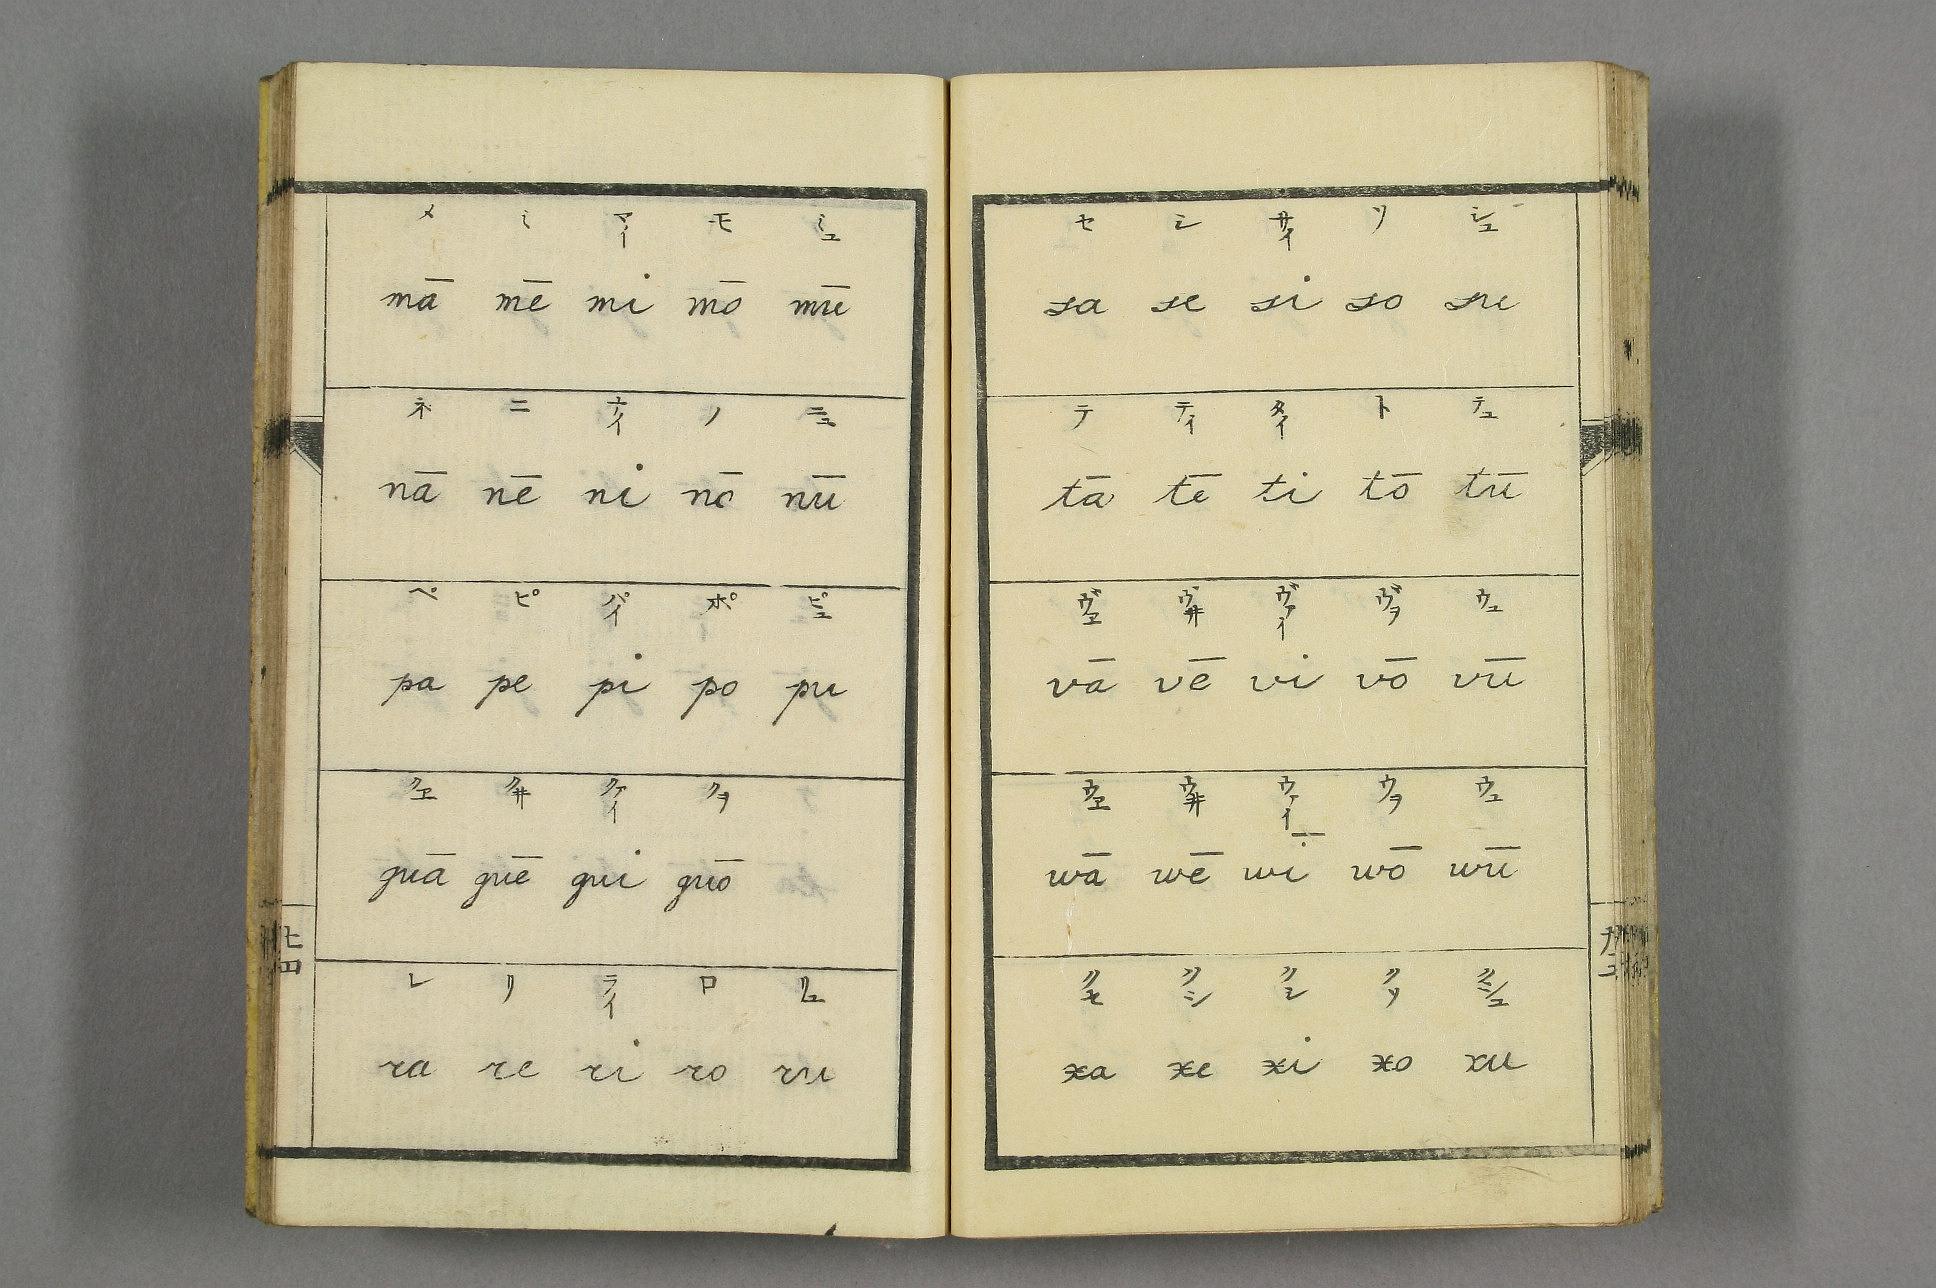 メ ミ マイ モ ミュ
mā mē mi mō mū
ネ ニ ナイ ノ ニュ
nā nē ni nō nū
ペ ピ パイ ポ ピュ
pa pe pi po pu
クヱ クヰ クァイ クヲ
quā quē qui quō
レ リ ライ ロ リュ
ra re ri ro ru
セ シ サイ ソ シュ
sa se si so su
テ ティ タイ ト テュ
tā tē ti tō tū
ヴヱ ヴヰ ヴァイ ヴヲ ウュ
vā vē vi vō vū
ウヱ ウヰ ウァイ ウヲ ウュ
wā wē wi wō wū
クセ クシ クシ クソ クシュ
xa xe xi xo xu